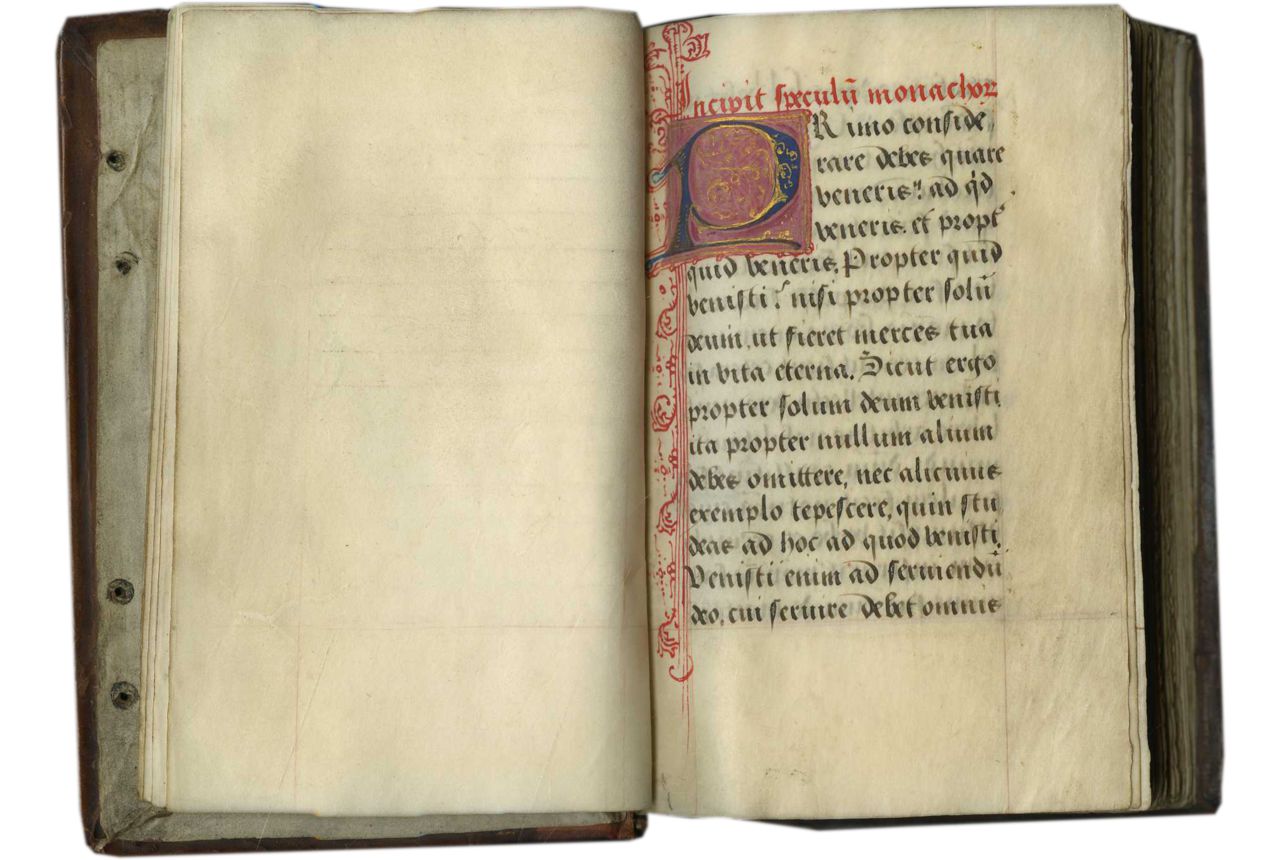 Incipit speculū monachoꝝ
PRimo conside,
rare debes quare
veneris? ad qd̓
veneris. et propt᷒
quid veneris. Propter quid
venisti? nisi propter solū
deum, ut fieret merces tua
in vita eterna. Sicut ergo
propter solum deum venisti
ita propter nullum alium
debes omittere, nec alicuius
exemplo tepescere, quin stu
deas ad hoc ad quod venisti.
Venisti enim ad seruiendū
deo, cui seruire debet omnis